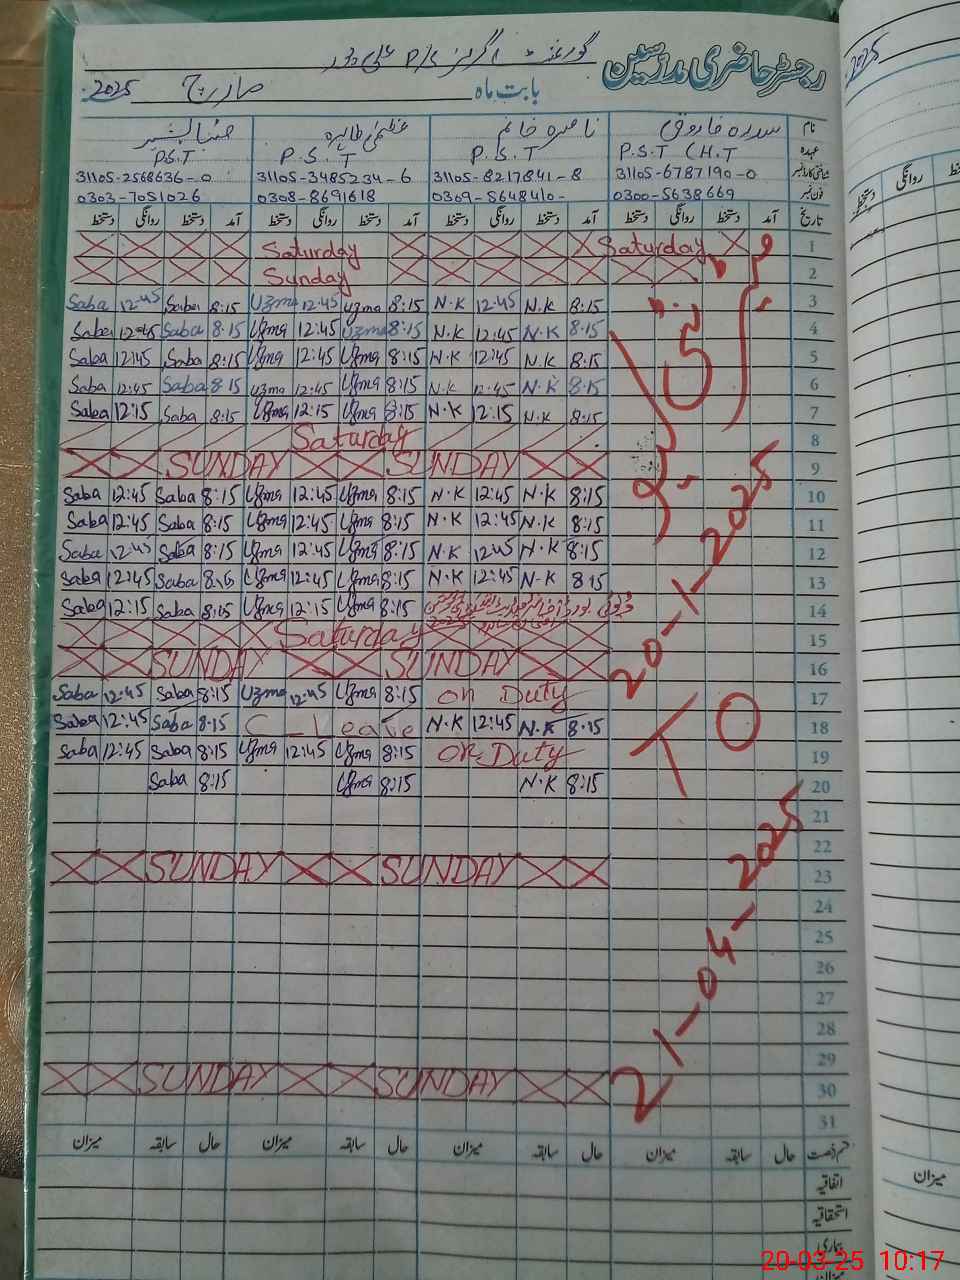 رجسٹر حاضری مدرسین گورنمنٹ گرلز P/S علی پور
بابت ماہ مارچ 2025
نام سدرہ فاروق ناصرہ خانم عظمیٰ طاہرہ
عہدہ P.S.T (H.T P.S.T P.S.T P.S.T
شناختی کارڈ نمبر 31105-6787190-0 31105-8217841-8 31105-3485234-6 31105-2568636-0
فون نمبر 0300-5638669 0309-5648410- 0308-8691618 0303-7051026
تاریخ آمد دستخط روانگی دستخط آمد دستخط روانگی دستخط آمد دستخط روانگی دستخط آمد دستخط روانگی دستخط
Saturday Saturday 1
Sunday 2
Saba 12-45 Saba 8:15 Uzma 12:45 Uzma 8:15 N.K 12:45 N.K 8:15 3
Saba 12:45 Saba 8-15 Uzma 12:45 Uzma 8:15 N.K 12:45 N.K 8:15 4
Saba 12:45 Saba 8:15 Uzma 12:45 Uzma 8:15 N.K 12:45 N.K 8:15 5
Saba 12:45 Saba 8:15 Uzma 12:45 Uzma 8:15 N.K 12:45 N.K 8:15 6
Saba 12:15 Saba 8:15 Uzma 12:15 Uzma 8:15 N.K 12:15 N.K 8:15 7
Saturday 8
SUNDAY SUNDAY 9
Saba 12:45 Saba 8:15 Uzma 12:45 Uzma 8:15 N.K 12:45 N.K 8:15 10
Saba 12:45 Saba 8:15 Uzma 12:45 Uzma 8:15 N.K 12:45 N.K 8:15 11
Saba 12:45 Saba 8:15 Uzma 12:45 Uzma 8:15 N.K 12:45 N.K 8:15 12
Saba 12:45 Saba 8:15 Uzma 12:45 Uzma 8:15 N.K 12:45 N-K 8:15 13
Saba 12:15 Saba 8:15 Uzma 12:15 Uzma 8:15 ڈیوٹی 14
Saturday 15
SUNDAY SUNDAY 16
Saba 12:45 Saba 8:15 Uzma 12:45 Uzma 8:15 on Duty 17
Saba 12:45 Saba 8:15 C_Leave N.K 12:45 N.K 8:15 18
Saba 12:45 Saba 8:15 Uzma 12:45 Uzma 8:15 on Duty 19
Saba 8:15 Uzma 8:15 N.K 8:15 20
21
22
SUNDAY SUNDAY 23
24
25
26
27
28
29
SUNDAY SUNDAY 30
31
20-1-2025
TO
21-04-2025
قسم رخصت حال سابقہ میزان حال سابقہ میزان حال سابقہ میزان حال سابقہ میزان
اتفاقیہ
استحقاقیہ
بیماری
میزان
2025
دستخط روانگی
میزان
20-03-25 10:17